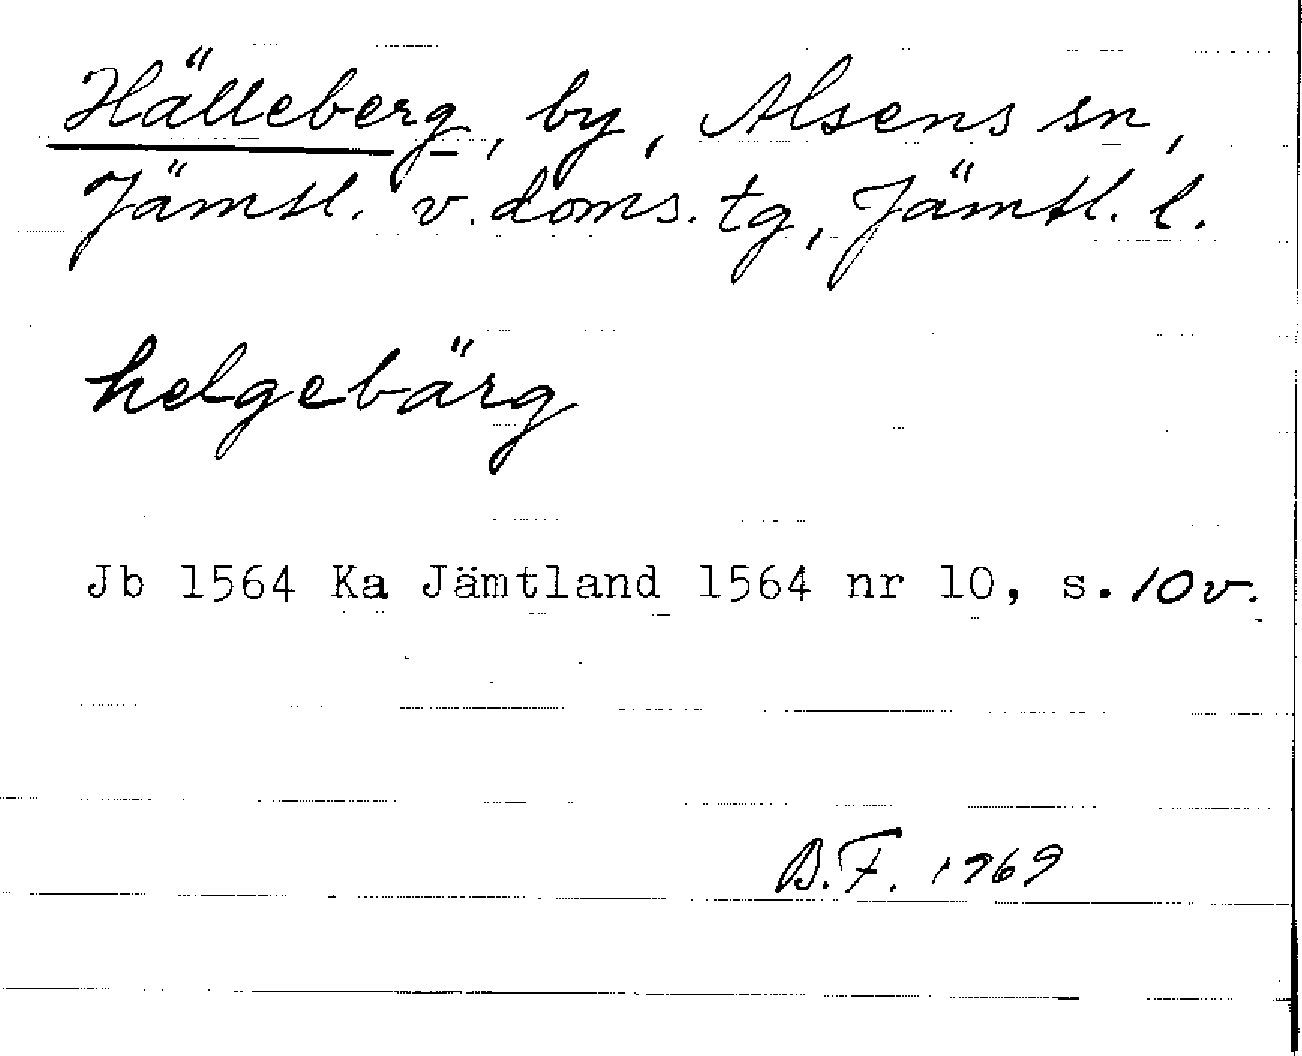 Hälleberg, by, Alsens sn,
Jämtl. v. doms. tg, Jämtl. l.
helgebärg
Jb 1564 Ka Jämtland 1564 nr 10, s. 10v.
B.F. 1969